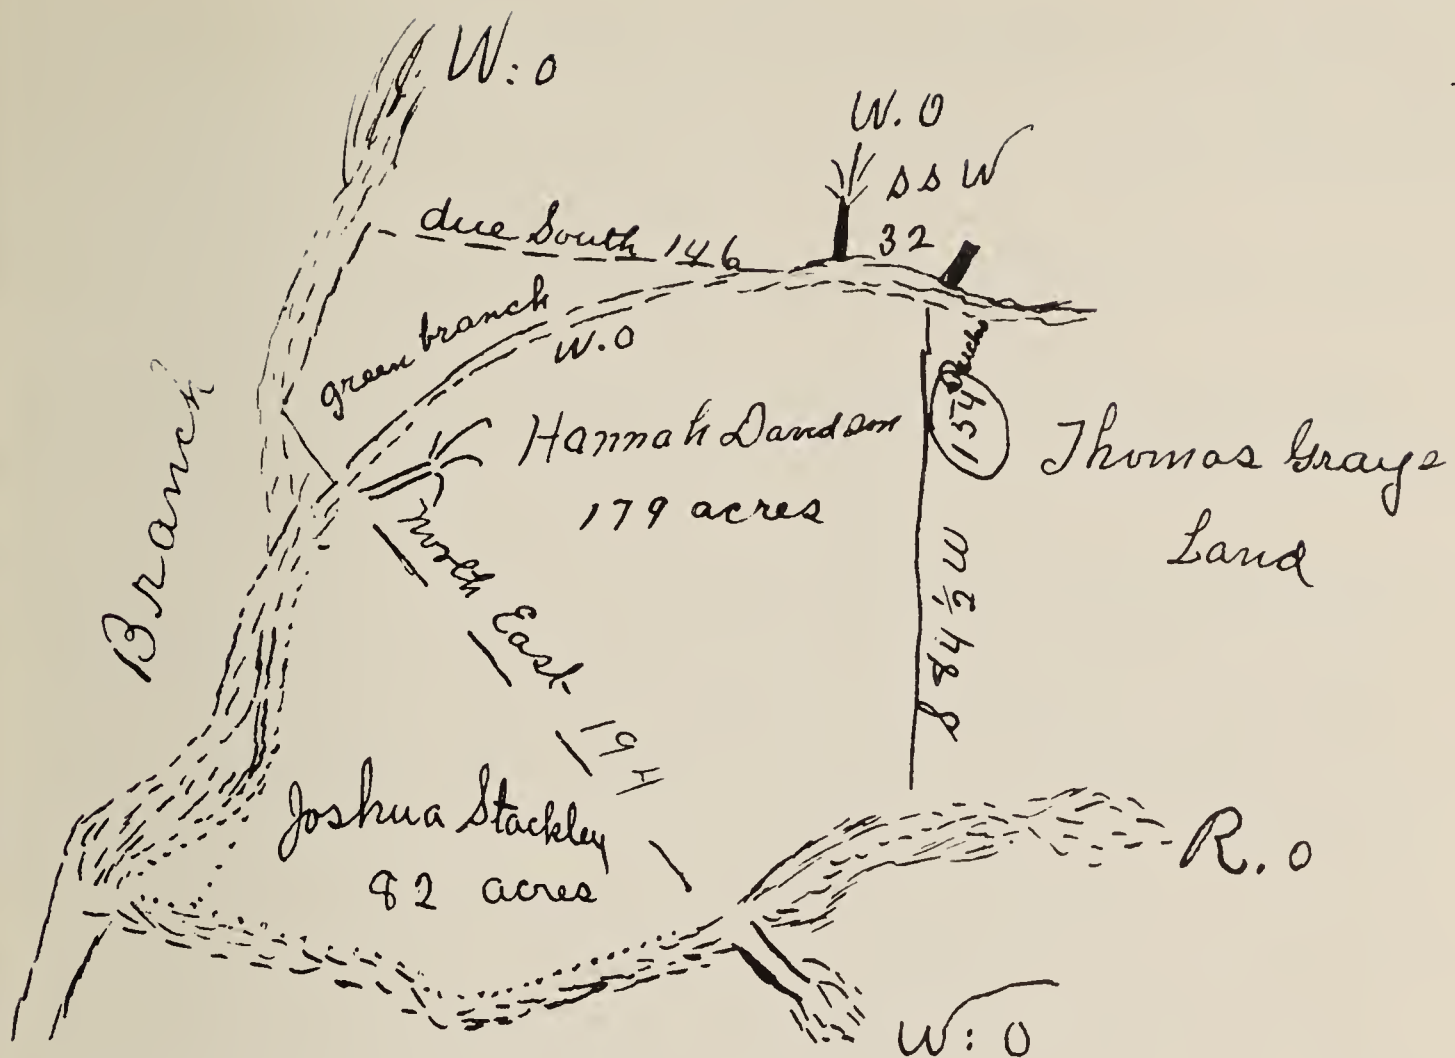 W: O
W. O
SSW
32
due South 146
green branch
W. O
Branch
Hannah Davidson
179 acres
154
S 84 1/2 W
Thomas Grays
Land
North East 194
Joshua Stackley
82 acres
R. O
W: O